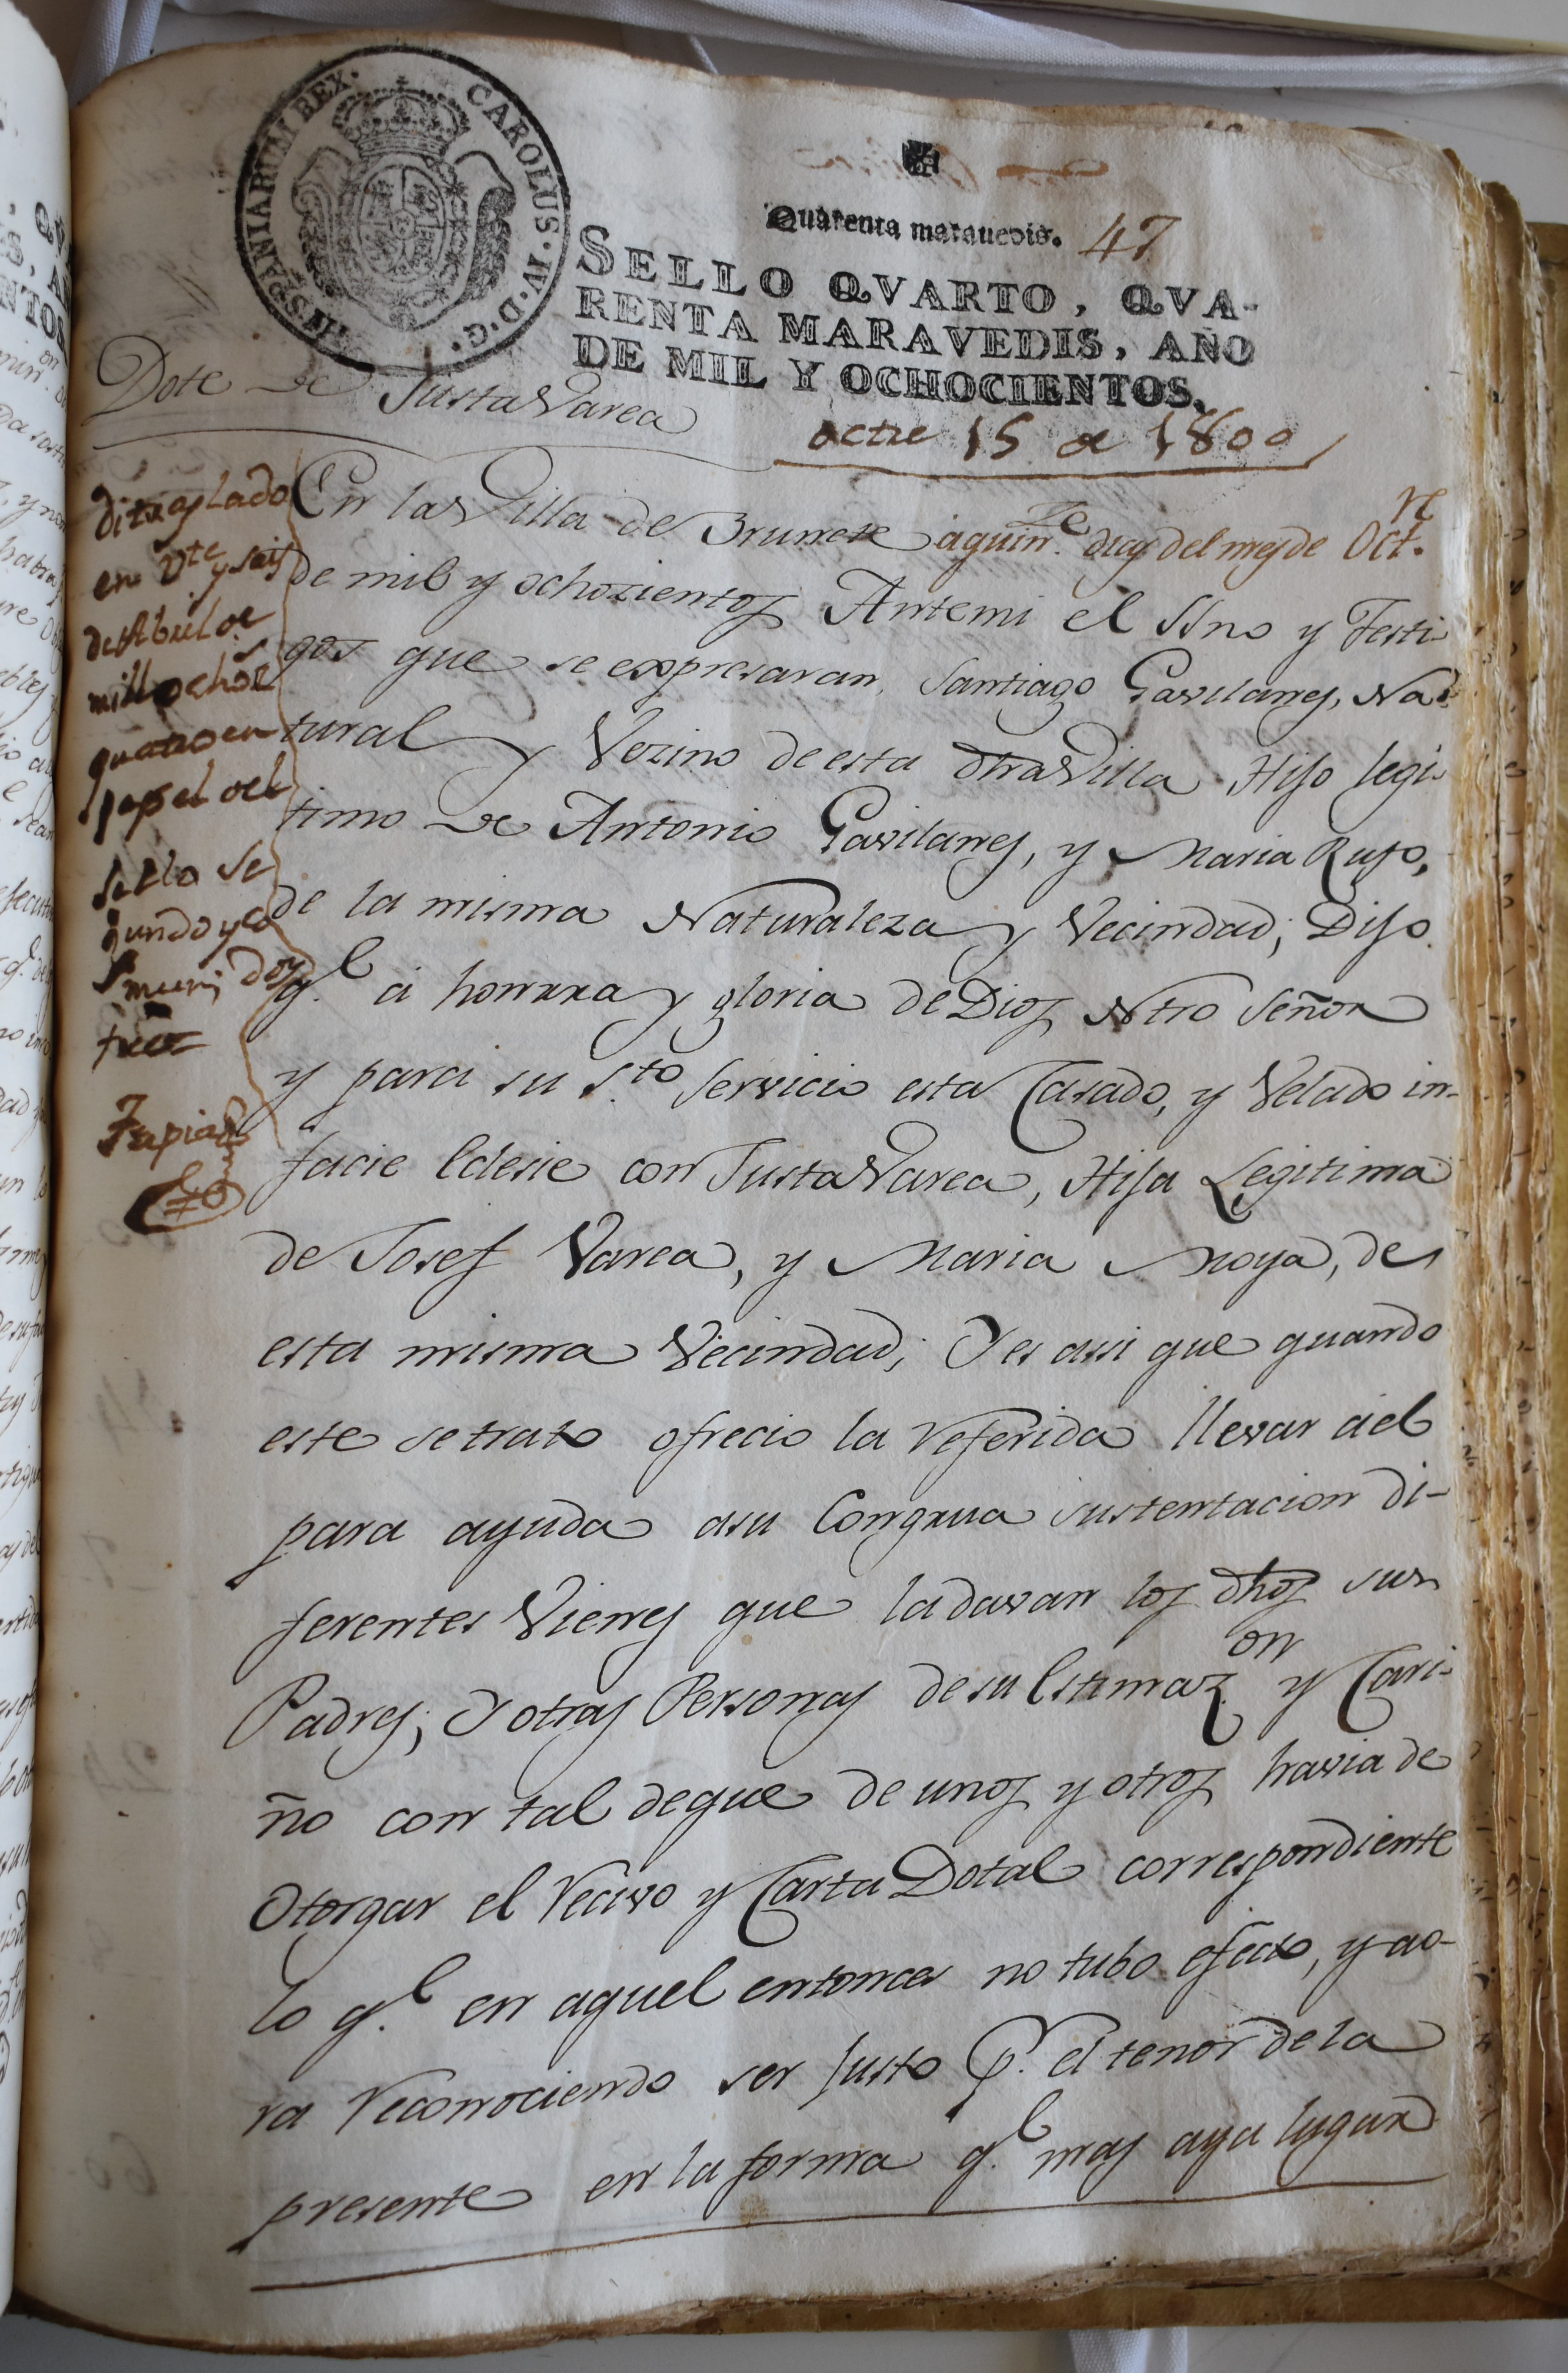 HISPANIARUM REX. CAROLUS. IV. D. G.
Quarenta marauedis. 47
SELLO QVARTO, QVA-
RENTA MARAVEDIS, AÑO
DE MIL Y OCHOCIENTOS.
Dote de Justa Varea
octre 15 de 1800
di traslado
en Vte y seis
de Abril de
mill ochos
quatro en
papel del
sello se
gundo y co
mun; doy
fee=
Tapia
En la Villa de Brunete a quin.ze dias del mes de Oct.re
de mil y ochozientos Antemi el SSno y Testi
gos que se expresaran, Santiago Gavilanes, Na
tural y Vezino de esta dha Villa, Hijo legi
timo de Antonio Gavilanes, y Maria Rufo,
de la misma Naturaleza y Vecindad; Dijo
q.e á honrra y gloria de Dios Ntro Señor
y para su S.to Servicio esta Casado, y Velado in-
facie Eclesie con Justa Varea, Hija Legitima
de Josef Varea, y Maria Moya, de
esta misma Vecindad; Y es asi que quando
este se trato ofrecio la referida llevar a el
para ayuda a su Congrua sustentacion di-
ferentes Vienes que la davan los dhos sus
Padres; Y otras Personas de su Estimaz.on y Cari-
ño con tal de que de unos y otros havia de
Otorgar el recivo y Carta Dotal correspondiente
lo q.e en aquel entonces no tubo efecto, y ao-
ra reconociendo ser Justo P.r el tenor de la
presente en la forma q.e mas aya lugar